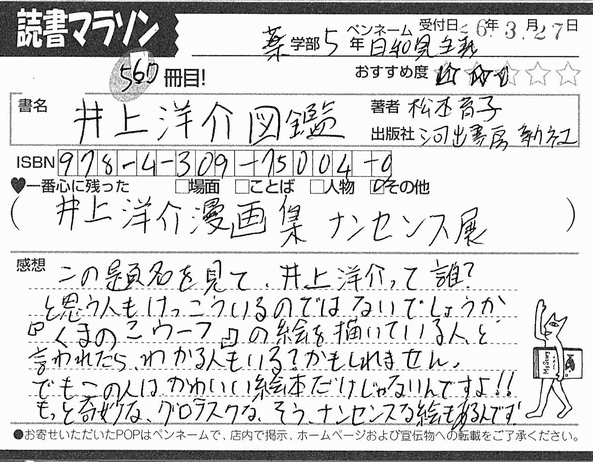 読書マラソン
薬 学部 5 年 ペンネーム 日和見主義 受付日 '6年3月27日
560 冊目! おすすめ度 ★★★☆☆
書名 井上洋介図鑑 著者 松本育子
出版社 河出書房新社
ISBN 978-4-309-75004-0
♥一番心に残った □場面 □ことば □人物 ☑その他
( 井上洋介漫画集 ナンセンス展 )
感想 この題名を見て、井上洋介って誰?
と思う人もけっこういるのではないでしょうか
『くまの子ウーフ』の絵を描いている人、と
言われたら、わかる人もいる?かもしれません。
でもこの人はかわいい絵本だけじゃないんですよ!!
もっと奇妙な、グロテスクな、そう、ナンセンスな絵もあるんです
●お寄せいただいたPOPはペンネームで、店内で掲示、ホームページおよび宣伝物への転載をご了承ください。